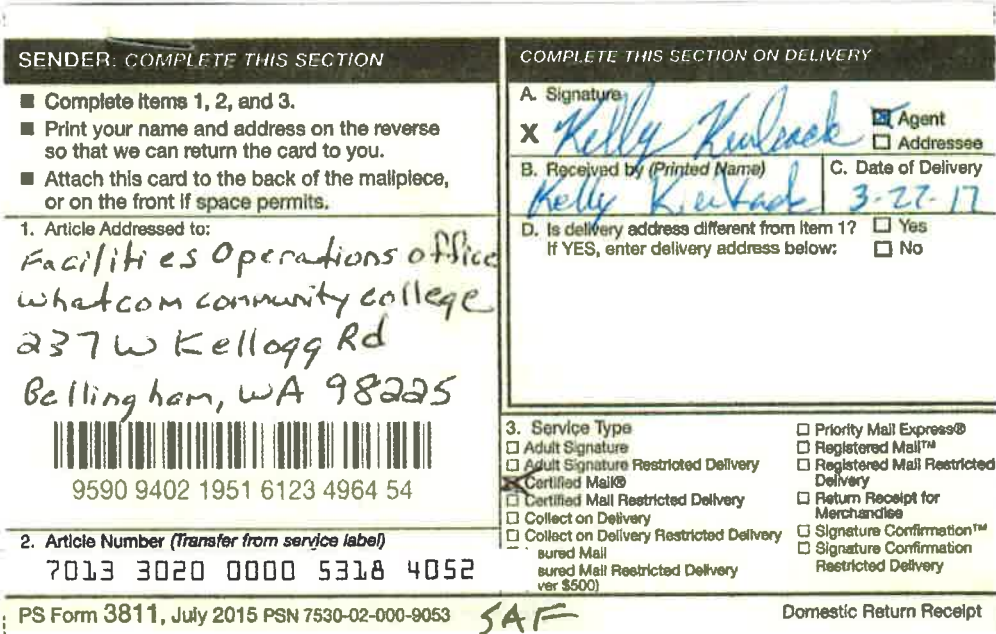 SENDER: COMPLETE THIS SECTION
■ Complete items 1, 2, and 3.
■ Print your name and address on the reverse
so that we can return the card to you.
■ Attach this card to the back of the mailpiece,
or on the front if space permits.
1. Article Addressed to:
Facilities Operations office
whatcom community college
237 W Kellogg Rd
Bellingham, WA 98225
9590 9402 1951 6123 4964 54
2. Article Number (Transfer from service label)
7013 3020 0000 5318 4052
COMPLETE THIS SECTION ON DELIVERY
A. Signature
X Kelly
☒ Agent
☐ Addressee
B. Received by (Printed Name)
Kelly
C. Date of Delivery
3-27-17
D. Is delivery address different from item 1? ☐ Yes
If YES, enter delivery address below: ☐ No
3. Service Type
☐ Adult Signature
☐ Adult Signature Restricted Delivery
☒ Certified Mail®
☐ Certified Mail Restricted Delivery
☐ Collect on Delivery
☐ Collect on Delivery Restricted Delivery
sured Mail
sured Mail Restricted Delivery
ver $500)
☐ Priority Mail Express®
☐ Registered Mail™
☐ Registered Mail Restricted
Delivery
☐ Return Receipt for
Merchandise
☐ Signature Confirmation™
☐ Signature Confirmation
Restricted Delivery
PS Form 3811, July 2015 PSN 7530-02-000-9053
SAF
Domestic Return Receipt